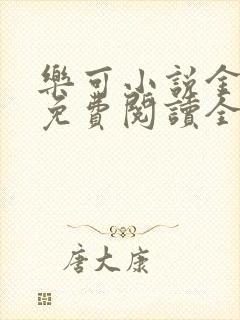 樂可小說全
免費閱讀全
唐大康